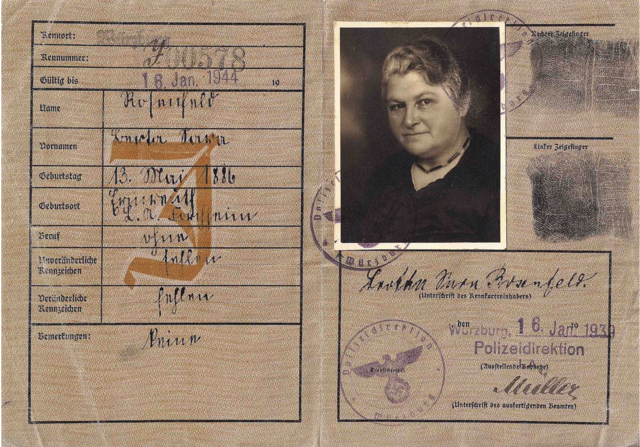 Kennort: Würzburg
Kennnummer: J 00578
Gültig bis 16. Jan. 1944 19
Name Rosenfeld
Vornamen Berta Sara
J
Geburtstag 13. Mai 1886
Geburtsort
L. A. Forchheim
Beruf ohne
Unveränderliche Kennzeichen fehlen
Veränderliche Kennzeichen fehlen
Bemerkungen: Keine
Rechter Zeigefinger
Linker Zeigefinger
Polizeidirektion
Würzburg
Sara Rosenfeld.
(Unterschrift des Kennkarteninhabers)
Würzburg, den 16. Jan. 1939
Polizeidirektion
(Ausstellende Behörde)
Müller
(Unterschrift des ausfertigenden Beamten)
Polizeidirektion
Würzburg